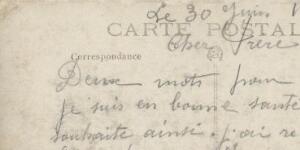 Le 30 Juin 1
CARTE POSTAL
Cher Frère
Correspondance
Deux mots pour
je suis en bonne santé
souhaite ainsi. j'ai re